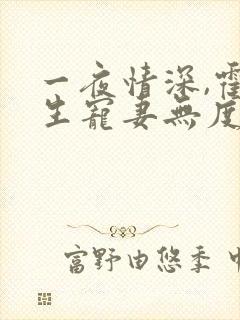 一夜情深,霍
生寵妻無度
富野由悠季 中